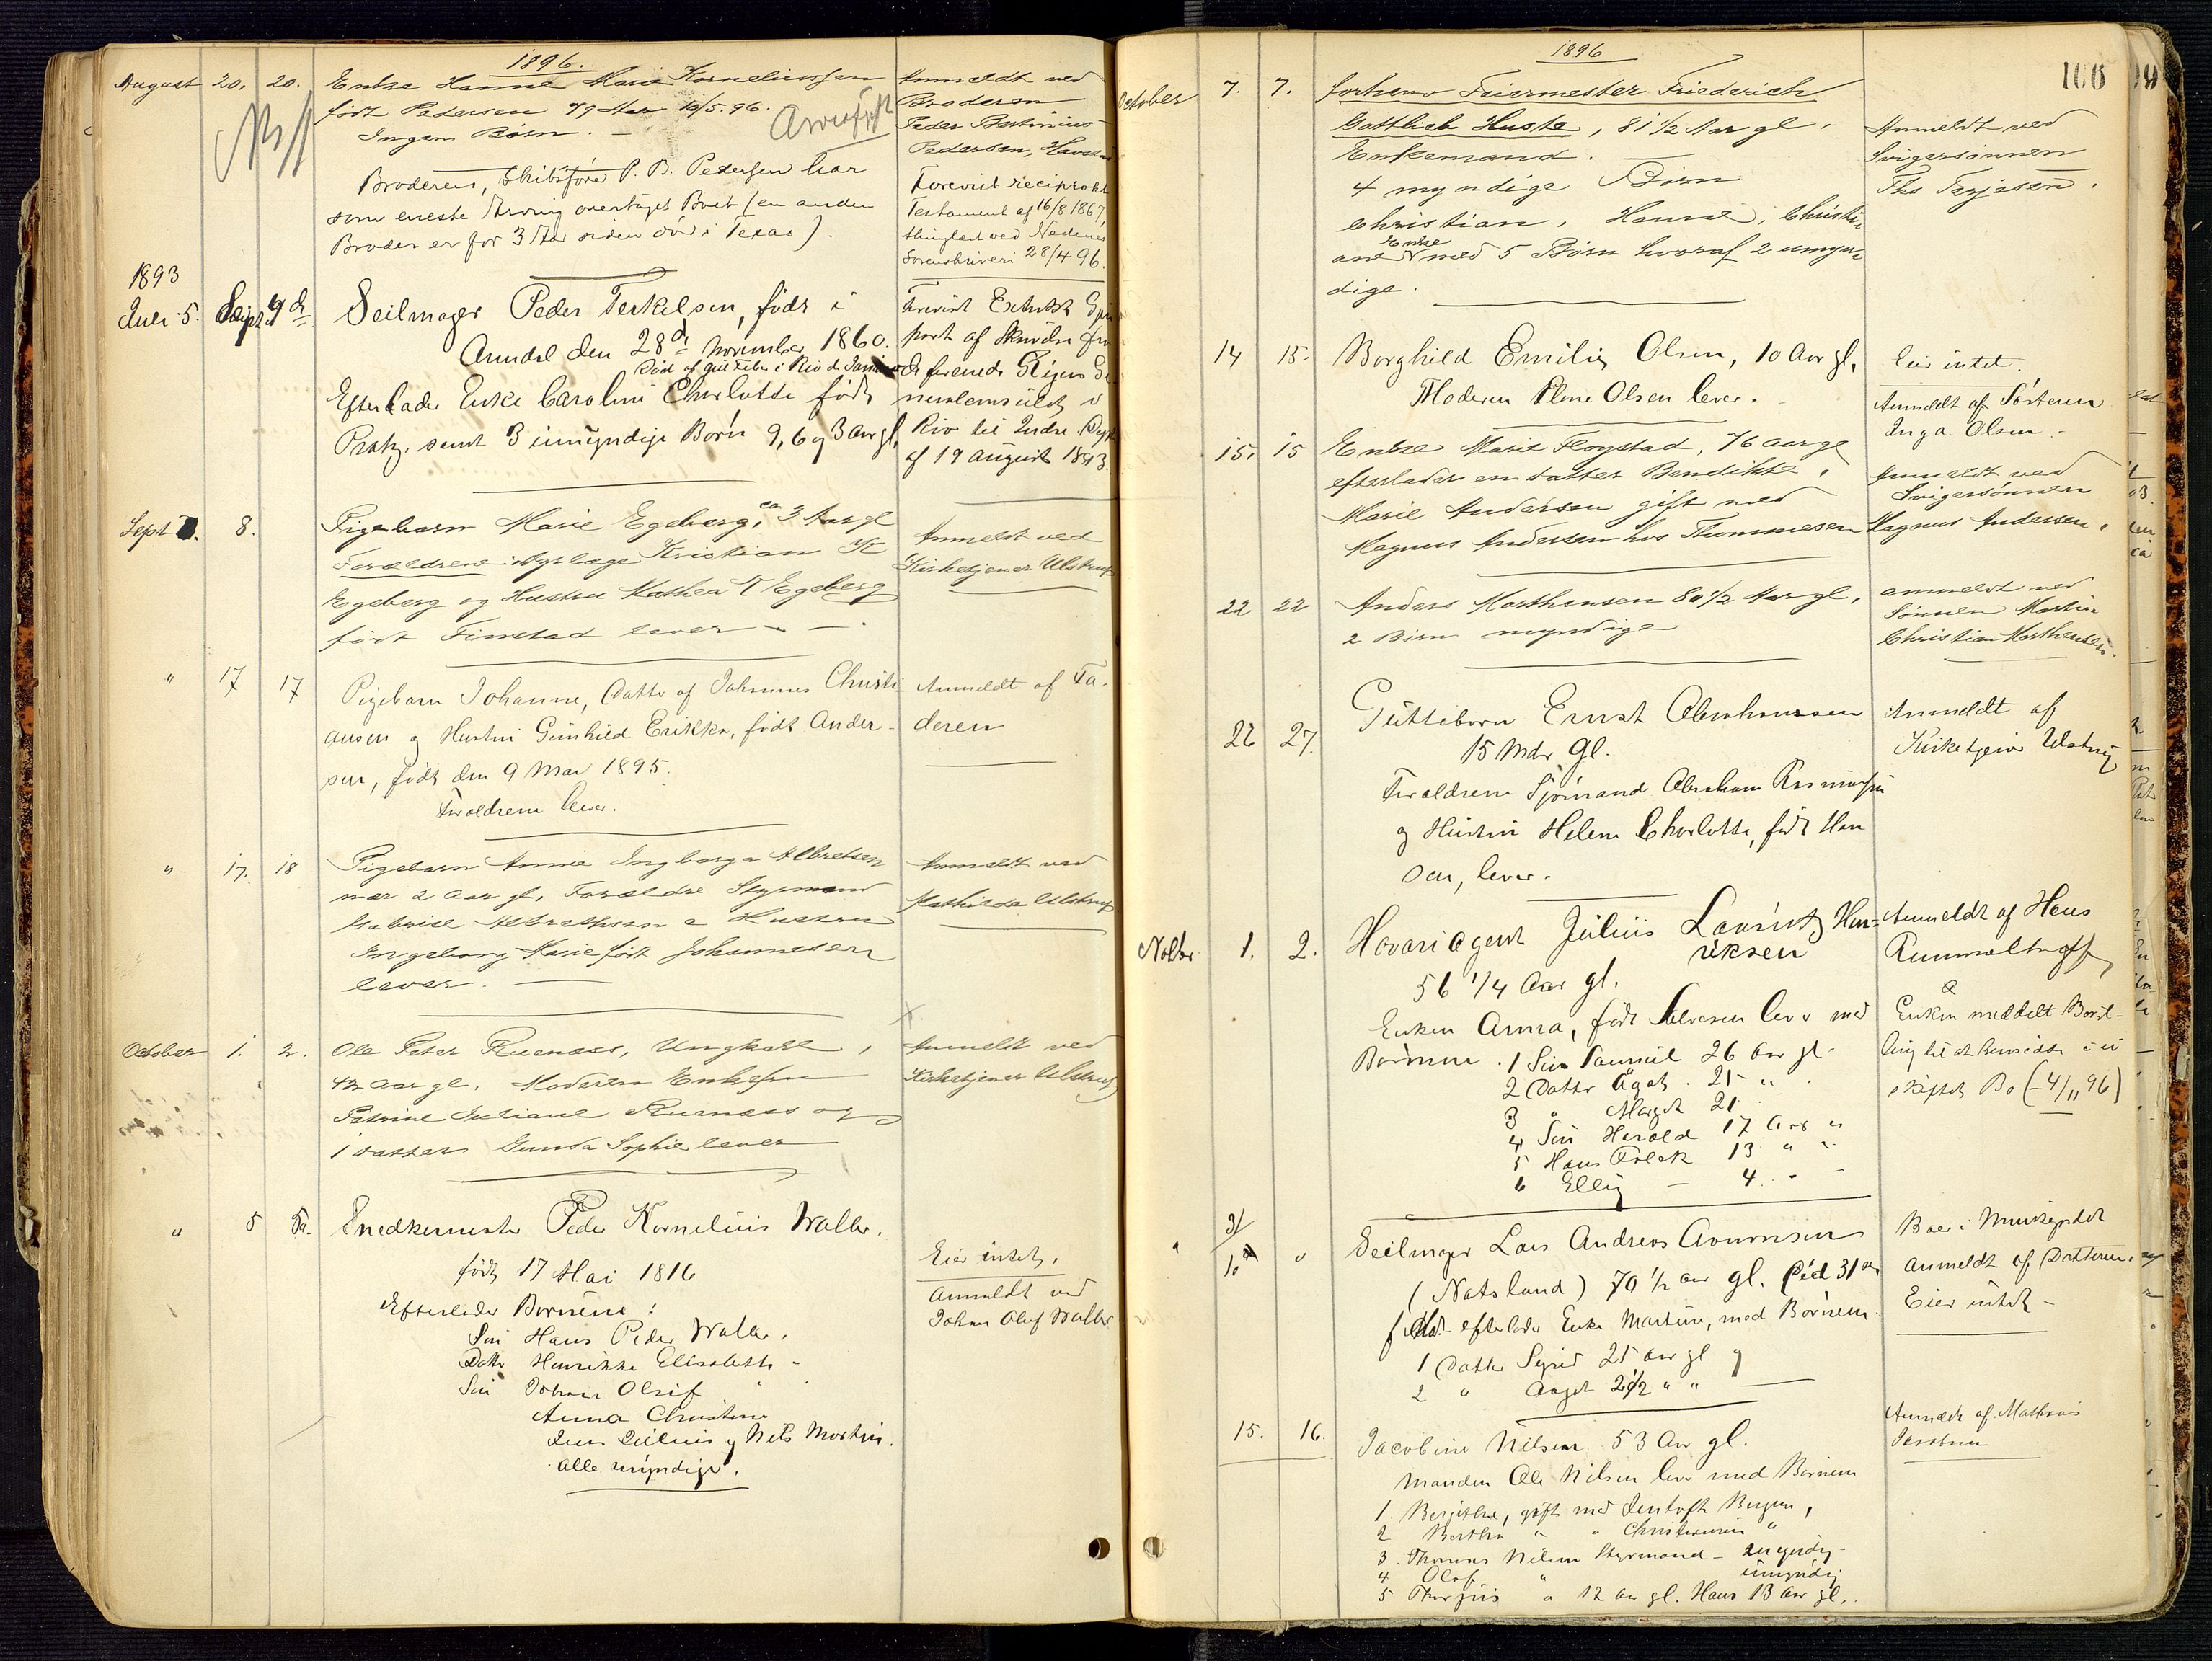 1896.
August 20. 20. Enke Hanne Marie Korneliussen
født Pedersen 79 Aar 10/5.96.
Ingen Børn. —
Arveafgift
Broderen, Skibsfører P. B. Pedersen har
som eneste Arving overtaget Boet (en anden
Broder er for 3 Aar siden død i Texas).
Anmeldt ved
Broderen
Peder Bertinius
Pedersen,
Forevist reciprokt
Testament af 16/8 1867,
thinglæst ved Nedenes
Sorenskriveri 28/4 96.
1893
Juli 5. Sept 9d
Seilmager Peder Terkelsen, født i
Arendal den 28d November 1860.
Død af gul Feber i Rio de Janeiro
Efterlader Enke Caroline Charlotte født
Pratz, samt 3 umyndige Børn 9, 6 og 3 Aar gl.
Forevist Extrakt
port af Skrivelse fra
de forenede Rigers Ge
neralconsulat i
Rio til Indre Dept
af 19 August 1893.
Sept 8.
Pigebarn Marie Egeberg, ca 3 Aar gl
Forældrene: Kristian K
Egeberg og Hustru Mathea T Egeberg
født Fimstad lever — —
Anmeldt ved
Kirketjener Ulstrup
" 17 17
Pigebarn Johanne, Datter af Johannes Christi-
ansen og Hustru Gunhild Erikka, født Ander-
sen, født den 9 Mar 1895.
Forældrene lever.
Anmeldt af Fa-
deren
" 17. 18
Pigebarn Annie Ingborga Albretsen
nær 2 Aar gl, Forældre Styrmand
Gabriel Albrethsen & Hustru
Ingeborg Marie født Johannesen
lever.
Anmeldt ved
Mathilde Ulstrup
October 1. 2.
Ole Peter Ruenæss, Ungkarl,
42 Aar gl. Moderen Enkefru
Petrine Juliane Ruenæss og
1 Datter Gunda Sophie lever
x
Anmeldt ved
Kirketjener Ulstrup
" 5 5.
Snedkermester Peder Kornelius Walle.
født 17 Mai 1816
Efterlader Børnene:
Søn Hans Peder Walle.
Dtr Henrikke Elisabeth -
Søn Johan Oluf "
Anna Christine
Jens Julius og Nils Martin.
alle myndige.
Eier intet.
Anmeldt ved
Johan Oluf Walle.
1896
106
October 7. 7.
forhenv Feiermester Friederich
Gottlieb Huste, 81 1/2 Aar gl.
Enkemand.
4 myndige Børn
Christian, Hanne, Christi
ane Enke med 5 Børn hvoraf 2 umyn
dige.
Anmeldt ved
Svigersønnen
Ths Terjesen.
14 15.
Borghild Emilie Olsen, 10 Aar gl.
Moderen Oline Olsen lever.
Eier intet.
Anmeldt af Søsteren
Inga Olsen -
15. 15
Enke Marie Fløystad, 76 Aar gl
efterlader en Datter Bendikte,
Marie Andersen gift med
Magnus Andersen hos Thommesen
Anmeldt ved
Svigersønnen
Magnus Andersen.
22 22
Anders Morthensen 80 1/2 Aar gl,
2 Børn myndige
anmeldt ved
Sønnen Martin
Christian Morthensen.
26 27.
Guttebarn Ernst Abrahamsen
15 Mdr gl.
Forældrene Sjømand Abraham Rasmussen
og Hustru Helene Charlotte, født Han
sen, lever.
Anmeldt af
Kirketjener Ulstrup
Novbr 1. 2.
Havariagent Julius Lauritz Hen-
riksen
56 1/4 Aar gl.
Enken Anna, født Salvesen lever med
Børnene. 1 Søn Samuel 26 Aar gl.
2 Datter Agat. 25 " "
3 " Margit 21
4 Søn Harald 17 Aar "
5 Hans Falck 13 " "
6 Elly — 4 - -
Anmeldt af Hans
Rummelhoff
Enken meddelt Bevil-
ling til at hensidde i u
skiftet Bo (4/11 96)
" 3/10 "
Seilmager Lars Andreas Aanonsen
(Natsland) 70 1/2 Aar gl. død 31te
f Md. efterlader Enke Martine, med Børnene
1 Datter Sigrid 25 Aar gl og
2 " Aagot 21 1/2 " "
Boer i Munkegaden
anmeldt af Datteren.
Eier intet —
15. 16.
Jacobine Nilsen 53 Aar gl.
Manden Ole Nilsen lever med Børnene
1. Bergitha, gift med Bergen,
2 Bertha " " "
3. Thomas Nilsen Styrmand — myndig
4 Olaf " umyndig
5 " 12 Aar gl. Hans 13 Aar gl.
Anmeldt af Mathias
Jacobsen